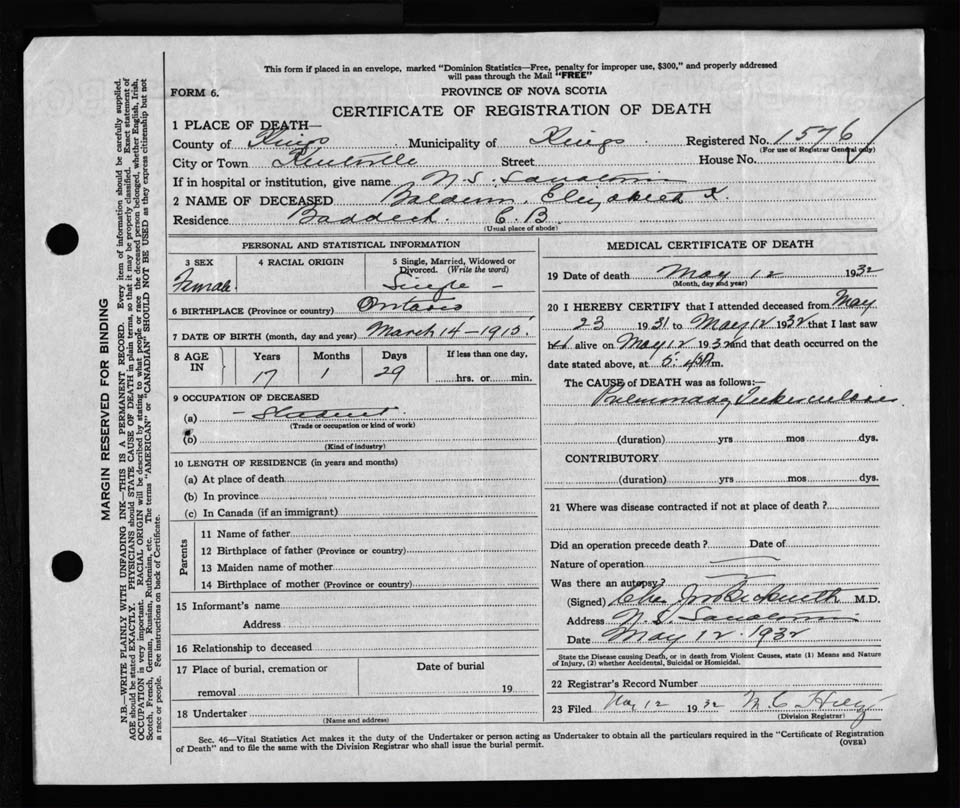 This form if placed in an envelope, marked "Dominion Statistics—Free, penalty for improper use, $300," and properly addressed
will pass through the Mail "FREE"
FORM 6.
PROVINCE OF NOVA SCOTIA
CERTIFICATE OF REGISTRATION OF DEATH
1 PLACE OF DEATH—
County of Kings Municipality of Kings Registered No. 1576
(For use of Registrar General only)
City or Town Kentville Street House No.
If in hospital or institution, give name N.S. Sanatorium
2 NAME OF DECEASED Elizabeth
Residence Baddeck C B
(Usual place of abode)
PERSONAL AND STATISTICAL INFORMATION
3 SEX 4 RACIAL ORIGIN 5 Single, Married, Widowed or Divorced. (Write the word)
Female. Single —
6 BIRTHPLACE (Province or country) Ontario
7 DATE OF BIRTH (month, day and year) March 14 - 1915
8 AGE IN Years Months Days If less than one day,
17 1 29 hrs. or min.
9 OCCUPATION OF DECEASED
(a) — Student
(Trade or occupation or kind of work)
(b)
(Kind of industry)
10 LENGTH OF RESIDENCE (in years and months)
(a) At place of death
(b) In province
(c) In Canada (if an immigrant)
Parents
11 Name of father
12 Birthplace of father (Province or country)
13 Maiden name of mother
14 Birthplace of mother (Province or country)
15 Informant's name
Address
16 Relationship to deceased
17 Place of burial, cremation or Date of burial
removal 19
18 Undertaker
(Name and address)
MEDICAL CERTIFICATE OF DEATH
19 Date of death May 12 1932
(Month, day and year)
20 I HEREBY CERTIFY that I attended deceased from May
23 1931 to May 12 1932 that I last saw
alive on May 12 1932 and that death occurred on the
date stated above, at m.
The CAUSE of DEATH was as follows:—
Pulmonary Tuberculosis
(duration) yrs mos dys.
CONTRIBUTORY
(duration) yrs mos dys.
21 Where was disease contracted if not at place of death?
Did an operation precede death? Date of
Nature of operation —
Was there an autopsy? —
(Signed) M.D.
Address N.S. Sanatorium
Date May 12 . 1932
State the Disease causing Death, or in death from Violent Causes, state (1) Means and Nature
of Injury, (2) whether Accidental, Suicidal or Homicidal.
22 Registrar's Record Number
23 Filed May 12 1932
(Division Registrar)
Sec. 46—Vital Statistics Act makes it the duty of the Undertaker or person acting as Undertaker to obtain all the particulars required in the "Certificate of Registration
of Death" and to file the same with the Division Registrar who shall issue the burial permit. (OVER)
MARGIN RESERVED FOR BINDING
N.B.—WRITE PLAINLY WITH UNFADING INK—THIS IS A PERMANENT RECORD. Every item of information should be carefully supplied.
AGE should be stated EXACTLY. PHYSICIANS should STATE CAUSE OF DEATH in plain terms, so that it may be properly classified. Exact statement of
OCCUPATION is very important. RACIAL ORIGIN will be described by stating to what people or race the deceased person belonged, whether English, Irish,
Scotch, French, German, Russian, Ruthenian, etc. The terms "AMERICAN" or "CANADIAN" SHOULD NOT BE USED as they express citizenship but not
a race or people. Fee instructions on back of Certificate.